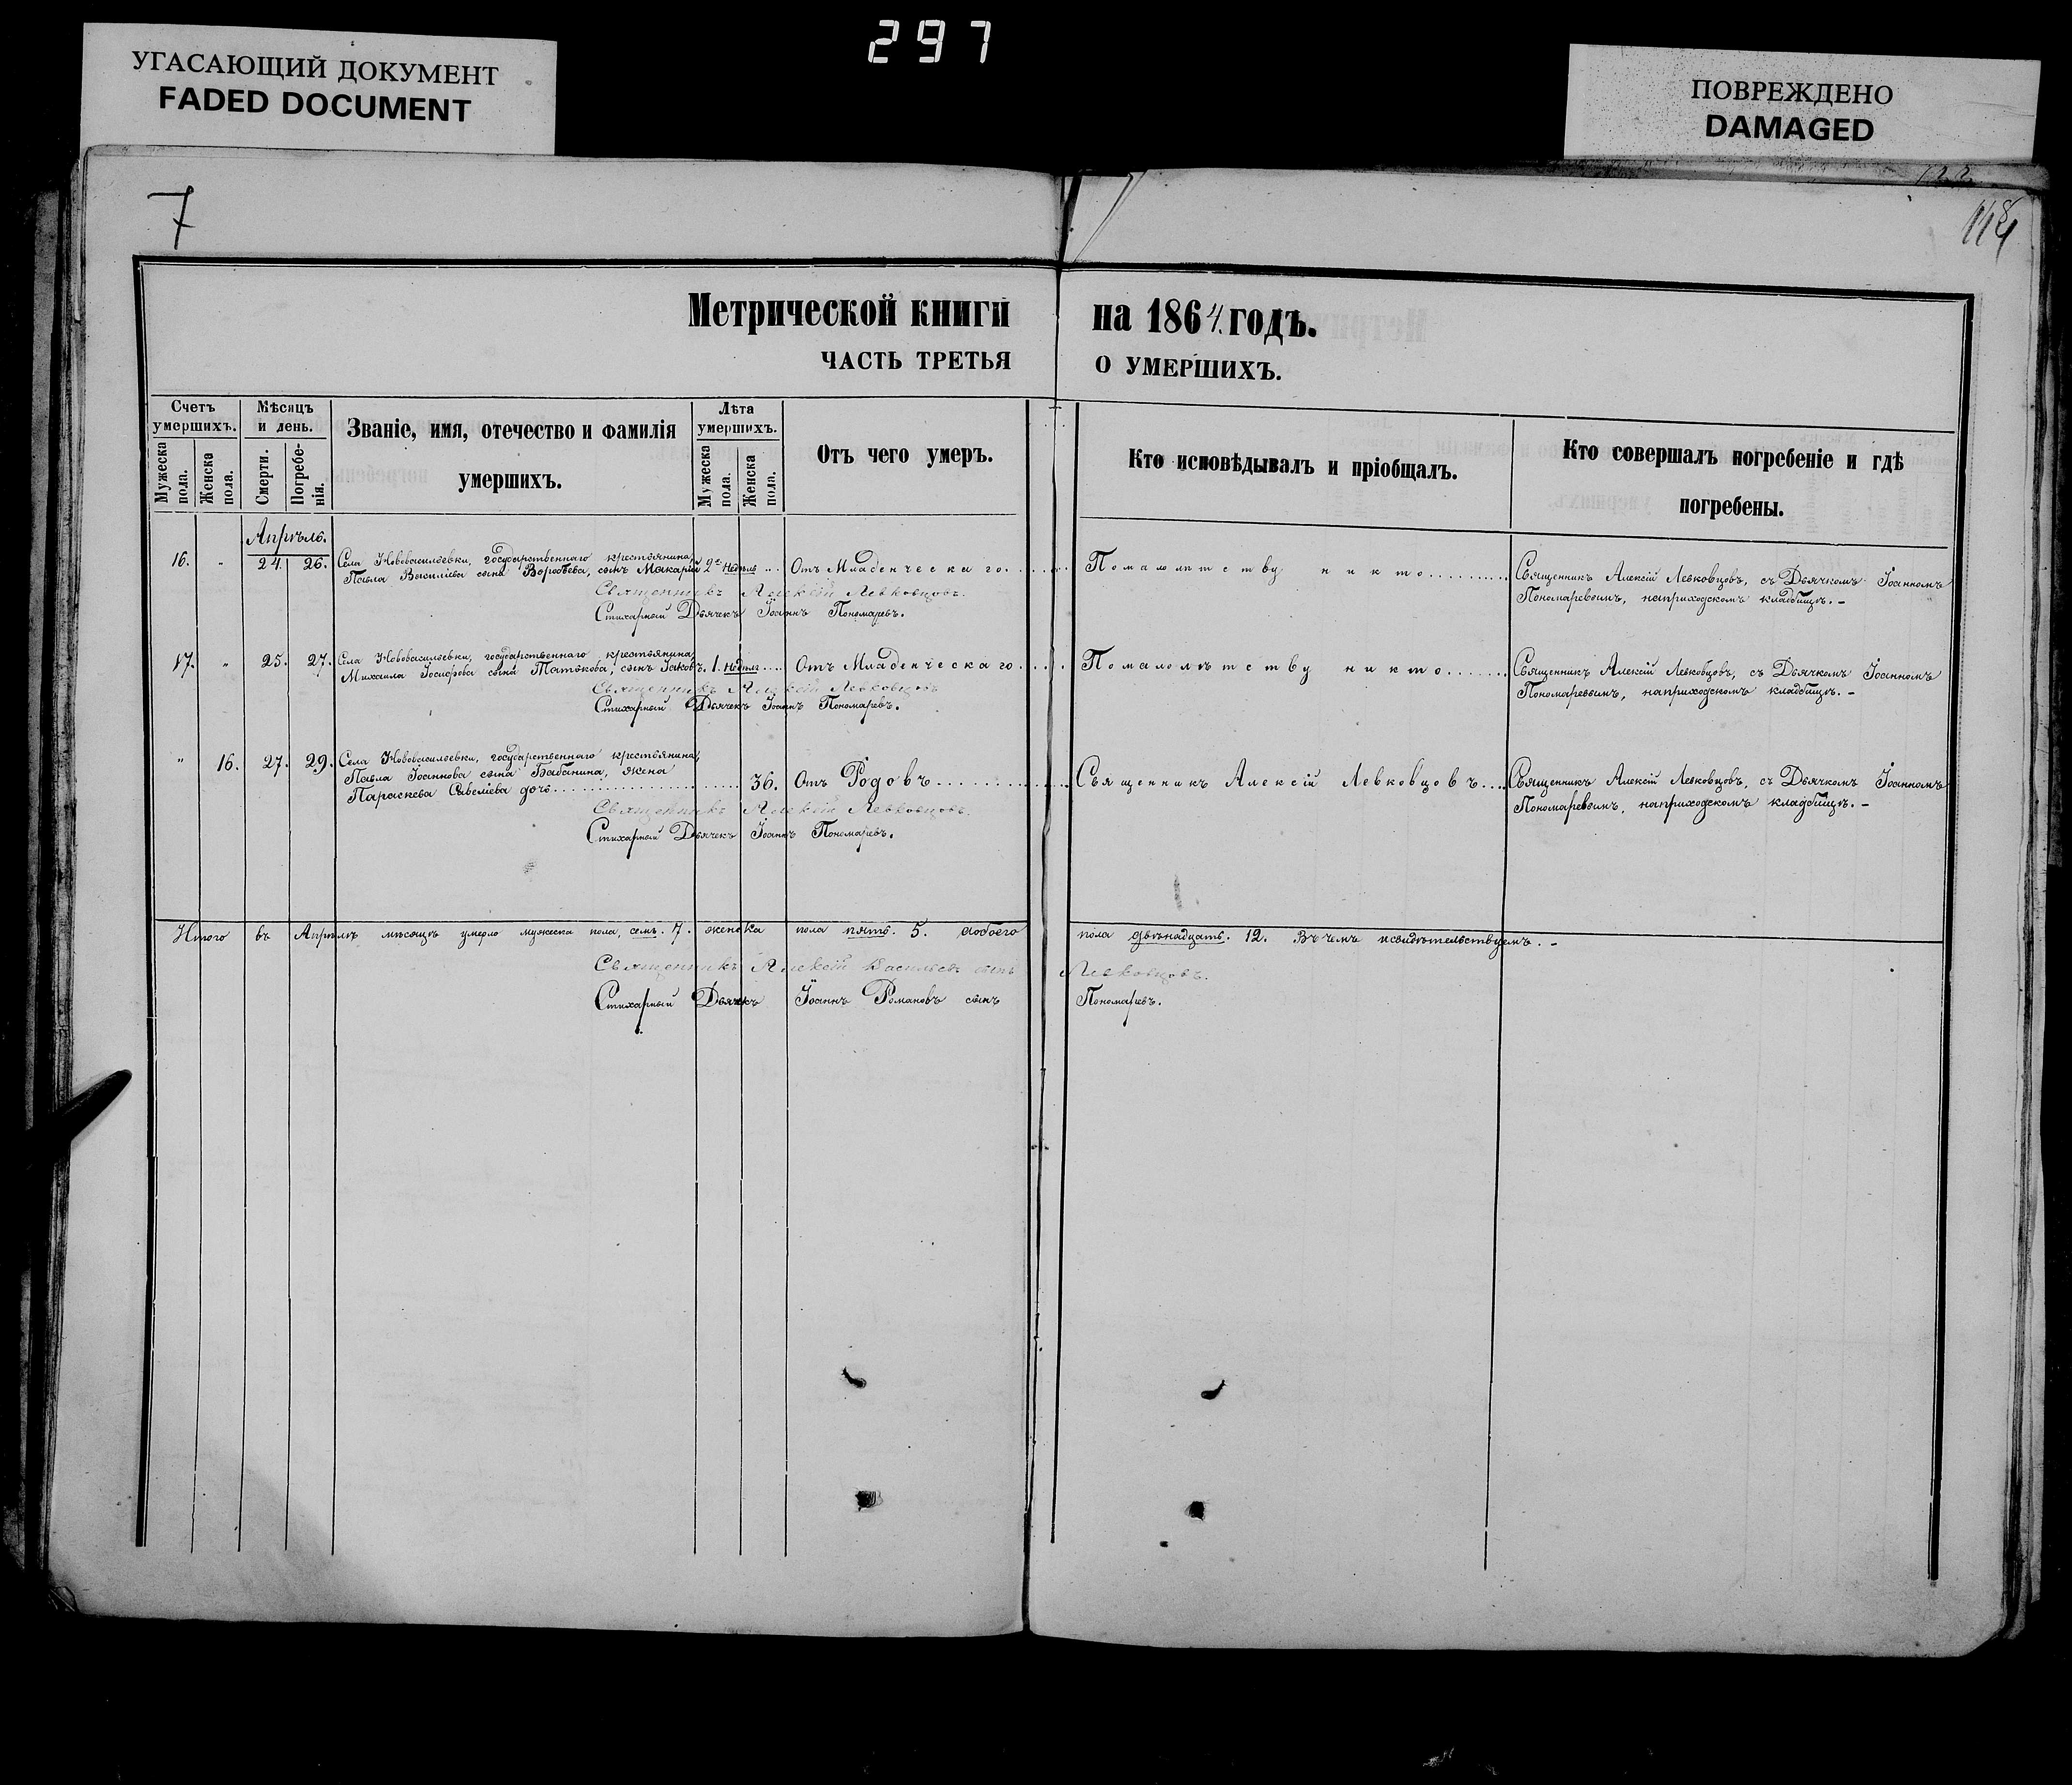 297
УГАСАЮЩИЙ ДОКУМЕНТ
FADED DOCUMENT
ПОВРЕЖДЕНО
DAMAGED
7
Метрической книги на 1864. годъ.
ЧАСТЬ ТРЕТЬЯ О УМЕРШИХЪ.
Счетъ умершихъ.
Мужеска пола.
Женска пола.
Мѣсяцъ и день.
Смерти.
Погребе-нія.
Званіе, имя, отечество и фамилія
умершихъ.
Лѣта умершихъ.
Мужеска пола.
Женска пола.
Отъ чего умеръ.
Кто исповѣдывалъ и пріобщалъ.
Кто совершалъ погребеніе и гдѣ
погребены.
Апрѣль.
16. " 24. 26. Села Нововасильевки, государственнаго крестьянина,
Павла Васильева сына Воробьева, сынъ Макарій 2хъ недѣль .... Отъ Младенческаго. Помалолѣтству никто.......... Священникъ Алексій Левковцовъ, съ Дьячкомъ Іоанномъ
Пономаревымъ, наприходскомъ кладбищѣ. –
Священникъ Алексій Левковцовъ.
Стихарный Дьячекъ Іоаннъ Пономаревъ.
17. " 25. 27. Села Нововасильевки, государственнаго крестьянина,
Михаила сына сынъ Іаковъ. 1. недѣли .... Отъ Младенческаго. Помалолѣтству никто........ Священникъ Алексій Левковцовъ, съ Дьячкомъ Іоанномъ
Пономаревымъ, наприходскомъ кладбищѣ. –
Священникъ Алексій Левковцовъ
Стихарный Дьячекъ Іоаннъ Пономаревъ.
" 16. 27. 29. Села Нововасильевки, государственнаго крестьянина,
Павла Іоаннова сына Бабанина, жена
Параскева Савеліева дочь.................... 36. Отъ Родовъ............ Священникъ Алексій Левковцовъ.... Священникъ Алексій Левковцовъ, съ Дьячкомъ Іоанномъ
Пономаревымъ, наприходскомъ кладбищѣ. –
Священникъ Алексій Левковцовъ.
Стихарный Дьячекъ Іоаннъ Пономаревъ.
Итого въ Апрѣлѣ мѣсяцѣ умерло мужеска пола, семь. 7. женска пола пять. 5. аобоего пола двѣнадцать. 12. Въ чемъ исвидѣтельствуемъ. –
Священникъ Алексій Васильевъ сынъ Левковцовъ.
Стихарный Дьячекъ Іоаннъ Романовъ сынъ Пономаревъ.